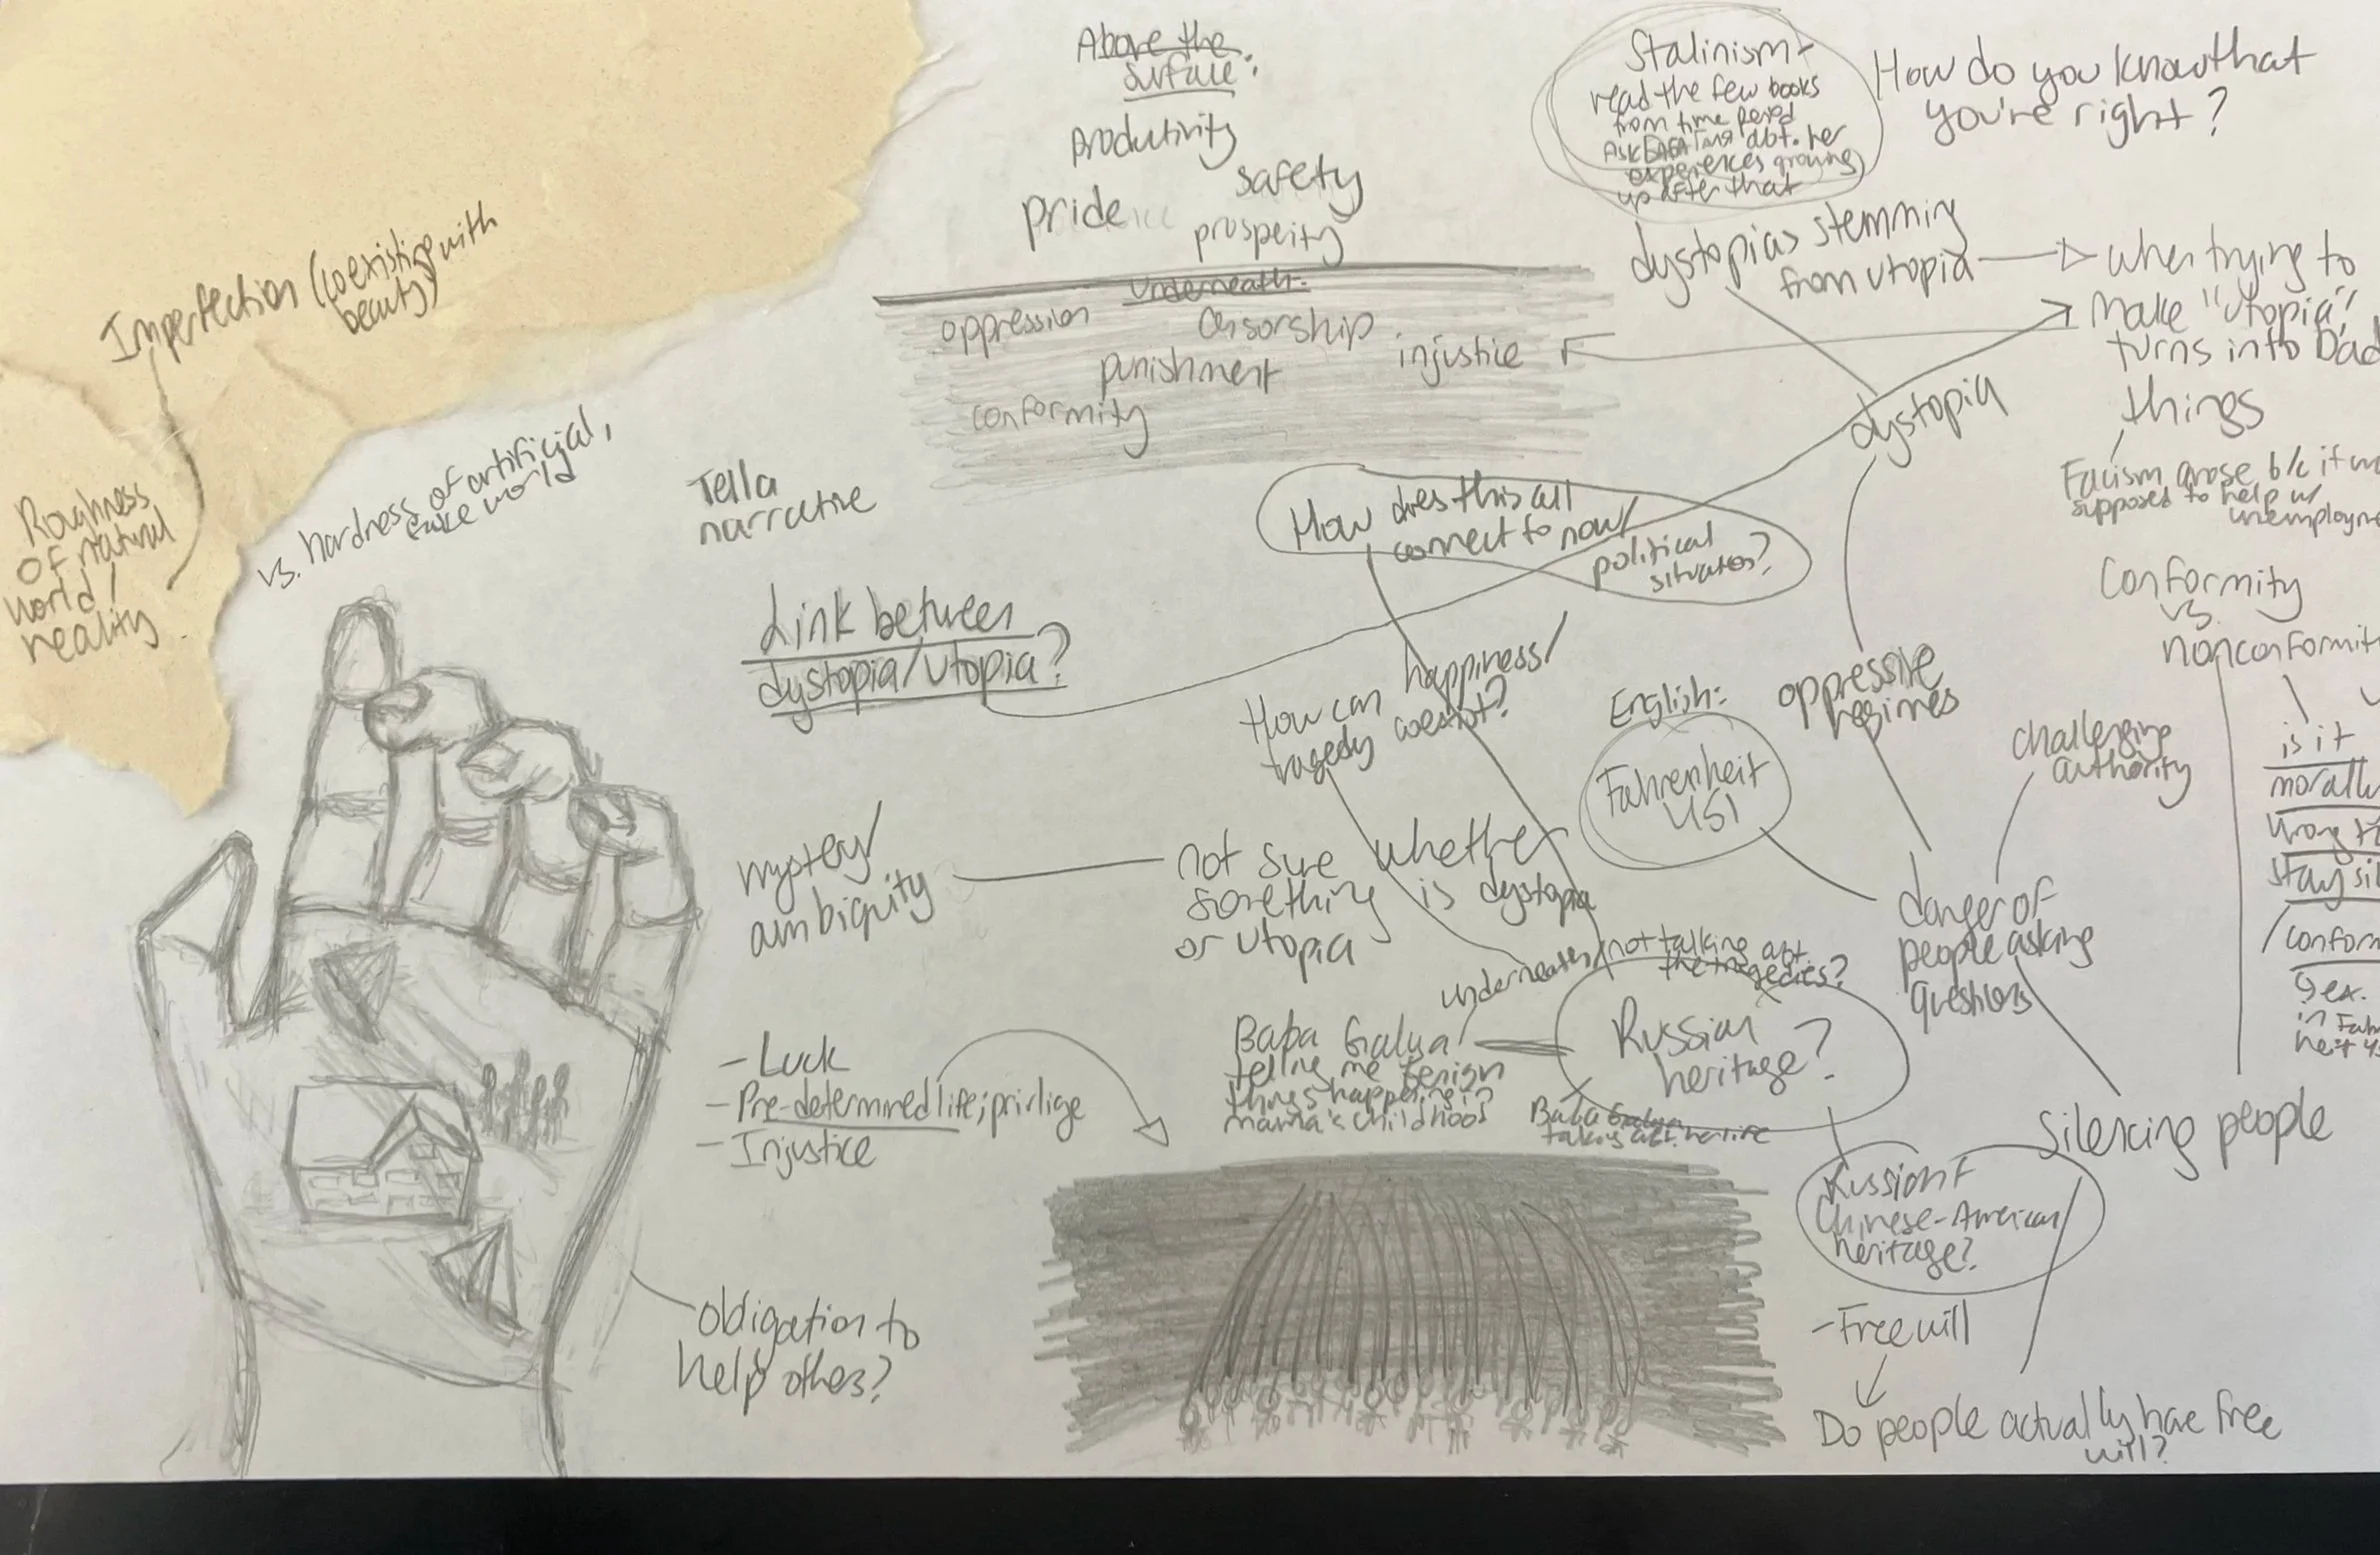 Above the
surface:
productivity
pride
safety
prosperity
underneath:
oppression
censorship
punishment
injustice
conformity
Stalinism -
read the few books
from time period
Ask abt. her
experiences growing
up after that
How do you know that
you're right?
dystopias stemming
from utopia
when trying to
make "utopia",
turns into bad
things
Facism arose b/c it
supposed to help w/
dystopia
Imperfection (coexisting with
beauty)
Roughness
of natural
world /
reality
vs. hardness of artificial,
fake world
Tell a
narrative
How does this all
connect to now/
political
situation?
Link between
dystopia/utopia?
How can happiness/
tragedy coexist?
English:
Fahrenheit
451
oppressive
regimes
Conformity
vs
challenging
authority
is it
stay
mystery/
ambiguity
not sure whether
something is dystopia
or utopia
danger of
people asking
questions
underneath/not talking abt.
the tragedies?
Baba Galya
telling me benign
things happening in
mama's childhood
Russian
heritage?
Baba Galya
talking abt. her life
ex.
in
- Luck
- Pre-determined life; privlige
- Injustice
silencing people
Russian +
Chinese-American
heritage?
obligation to
help others?
- Free will
Do people actually have free
will?